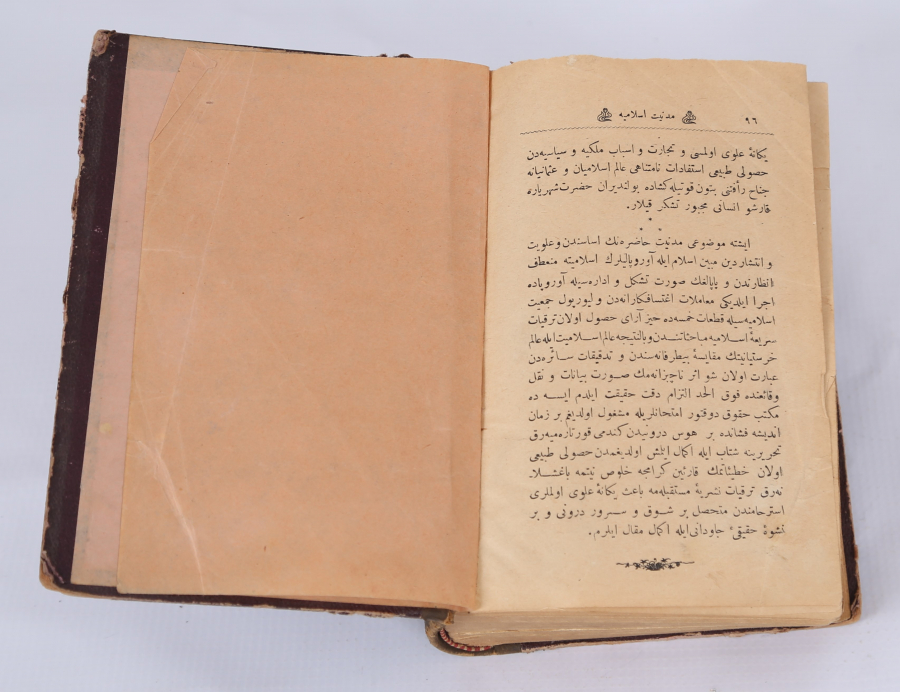 ٩٦
مدنیت اسلامیه
یکانهٔ علوی اولمسی و تجارت و اسباب ملکیه و سیاسیه‌دن
حصولی طبیعی استفادات نامتناهی عالم اسلامیان و عثمانیانه
جناح رأفتنی بتون قوتیله کشاده بولندیران حضرت شهریاره
قارشو انسانی مجبور تشکر قیلار.
* * *
ایشته موضوعی مدنیت حاضره‌نك اساسندن و علویت
و انتشار دین مبین اسلام ایله آوروپالیلرك اسلامیته منعطف
انظارندن و پاپالغك صورت تشکل و اداره‌سیله آوروپاده
اجرا ایلدیکی معاملات اغتسافکارانه‌دن و لیورپول جمعیت
اسلامیه‌سیله قطعات خمسه‌ده حیز آرای حصول اولان ترقیات
سریعهٔ اسلامیه مباحثاتندن و بالنتیجه عالم اسلامیت ایله عالم
خرستیانیتك مقایسهٔ بیطرفانه‌سندن و تدقیقات سائره‌دن
عبارت اولان شو اثر ناچیزانه‌مك صورت بیانات و نقل
وقائعنده فوق الحد التزام دقت حقیقت ایلدم ایسه ده
مکتب حقوق دوقتور امتحانلریله مشغول اولدیغم بر زمان
اندیشه فشانده بر هوس درونیدن کندمی قورتاره‌میه‌رق
تحریرینه شتاب ایله اکمال ایلمش اولدیغمدن حصولی طبیعی
اولان خطیئاتمك قارئین کرامجه خلوص نیتمه باغشلا
نه‌رق ترقیات نشریهٔ مستقبله‌مه باعث یکانهٔ علوی اولملری
استرحامندن متحصل بر شوق و سرور درونی و بر
نشوهٔ حقیقیهٔ جاودانی ایله اکمال مقال ایلرم.